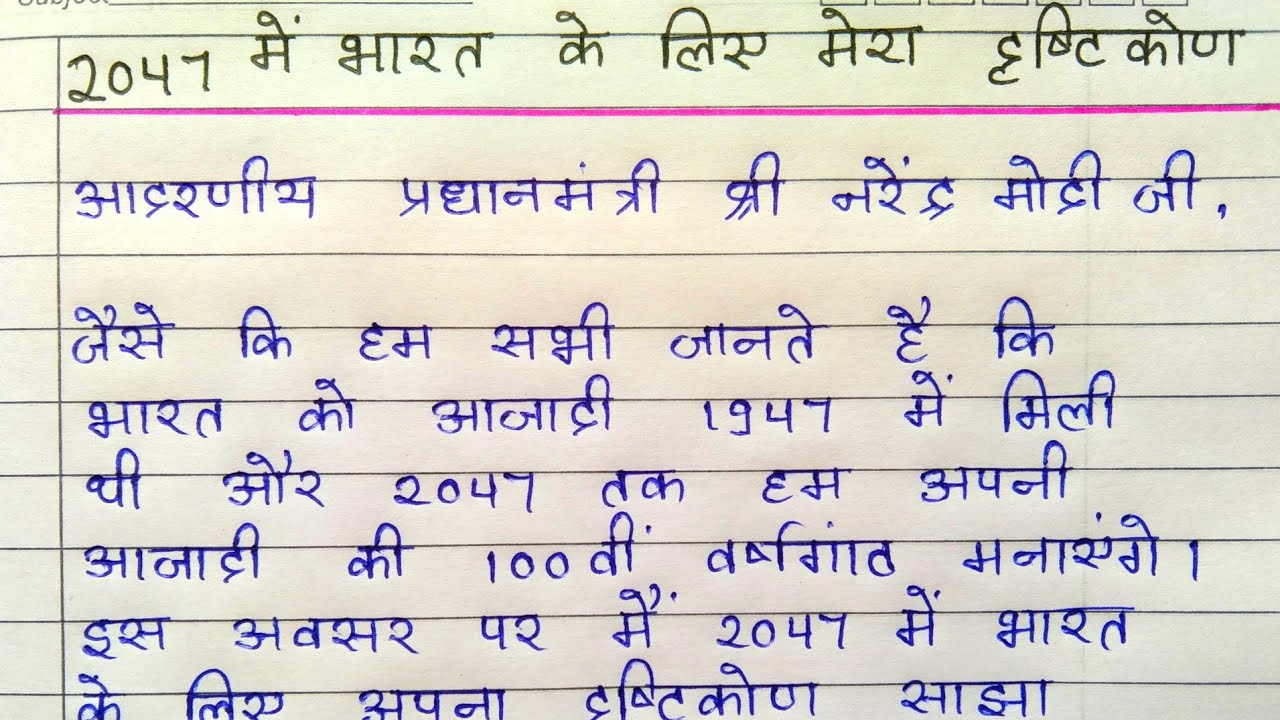 2047 में भारत के लिए मेरा दृष्टिकोण
आदरणीय प्रधानमंत्री श्री नरेंद्र मोदी जी,
जैसे कि हम सभी जानते है कि
भारत को आजादी 1947 में मिली
थी और 2047 तक हम अपनी
आजादी की 100वीं वर्षगांठ मनाएंगे।
इस अवसर पर मैं 2047 में भारत
के लिए अपना दृष्टिकोण साझा